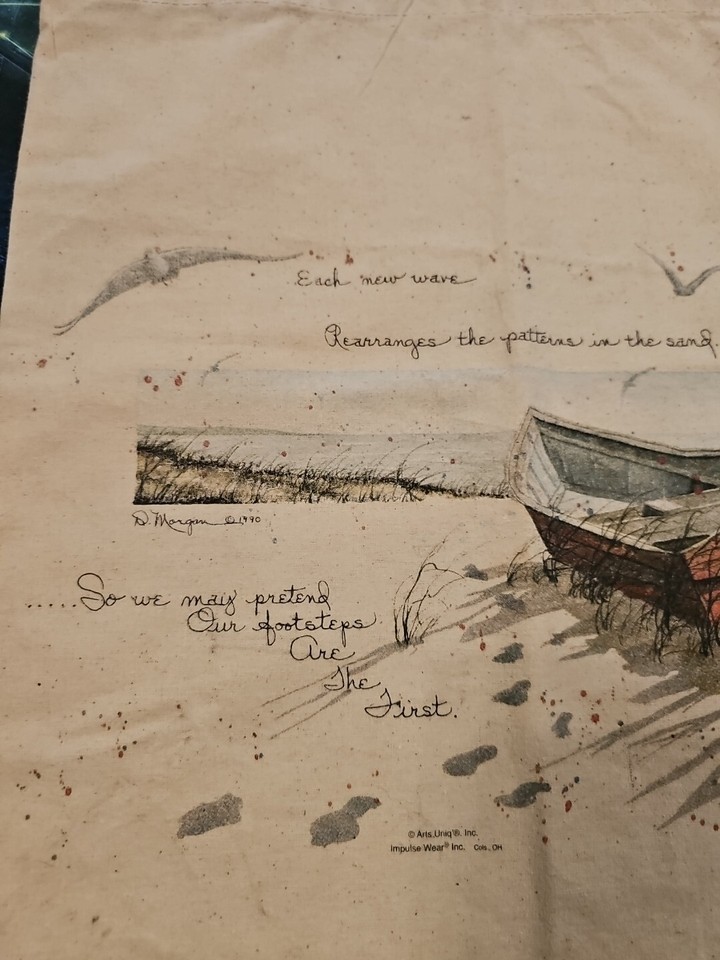 Each new wave
Rearranges the patterns in the sand.
D. Morgan © 1990
.....So we may pretend
Our footsteps
Are
The
First.
© Arts Uniq'®, Inc.
Impulse Wear® Inc. Cols., OH